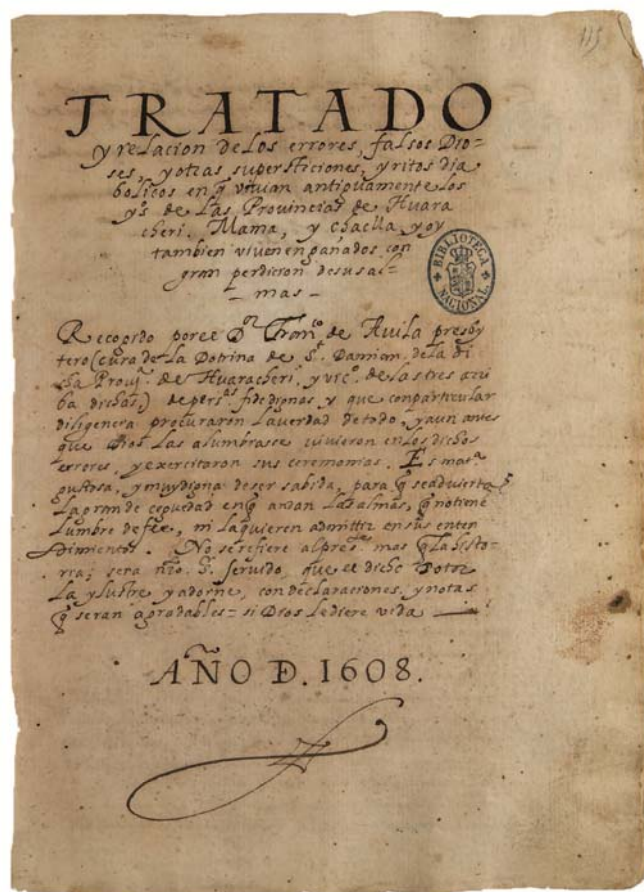 115
TRATADO
y relacion de los errores, falsos Dio=
ses, y otras supersticiones, y ritos dia
bolicos en q̃ viuian antiguamente los
yˢ de las Prouincias de Huara
cheri, Mama, y Chaclla y oy
tambien viuen engañados con
gran perdicion de sus al=
- mas -
BIBLIOTECA NACIONAL
Recogido por el Dºʳ Franᶜº de Auila presby
tero (cura de la Dotrina de Sᵗ. Damian de la di
cha Prouiª. de Huaracheri, y vicº. de las tres arri
ba dichas.) de persªˢ. fidedignas y que con particular
diligencia procuraron la verdad de todo, y aun antes
que Dios las alumbrasse viuieron en los dichos
errores, y exercitaron sus ceremonias. Es matª
gustosa, y muy digna de ser sabida, para q̃ se aduierta
la grande ceguedad en q̃ andan las almas, q̃ no tienē
lumbre de fee, ni la quieren admittir en sus enten
dimientos. No se refiere al presᵗᵉ mas q̃ la histo-
ria; sera nr̃o. S. seruido, que el dicho Dotor
la ylustre y adorne, con declaraciones, y notas
q̃ seran agradables = si Dios le diere vida
AÑO D. 1608.